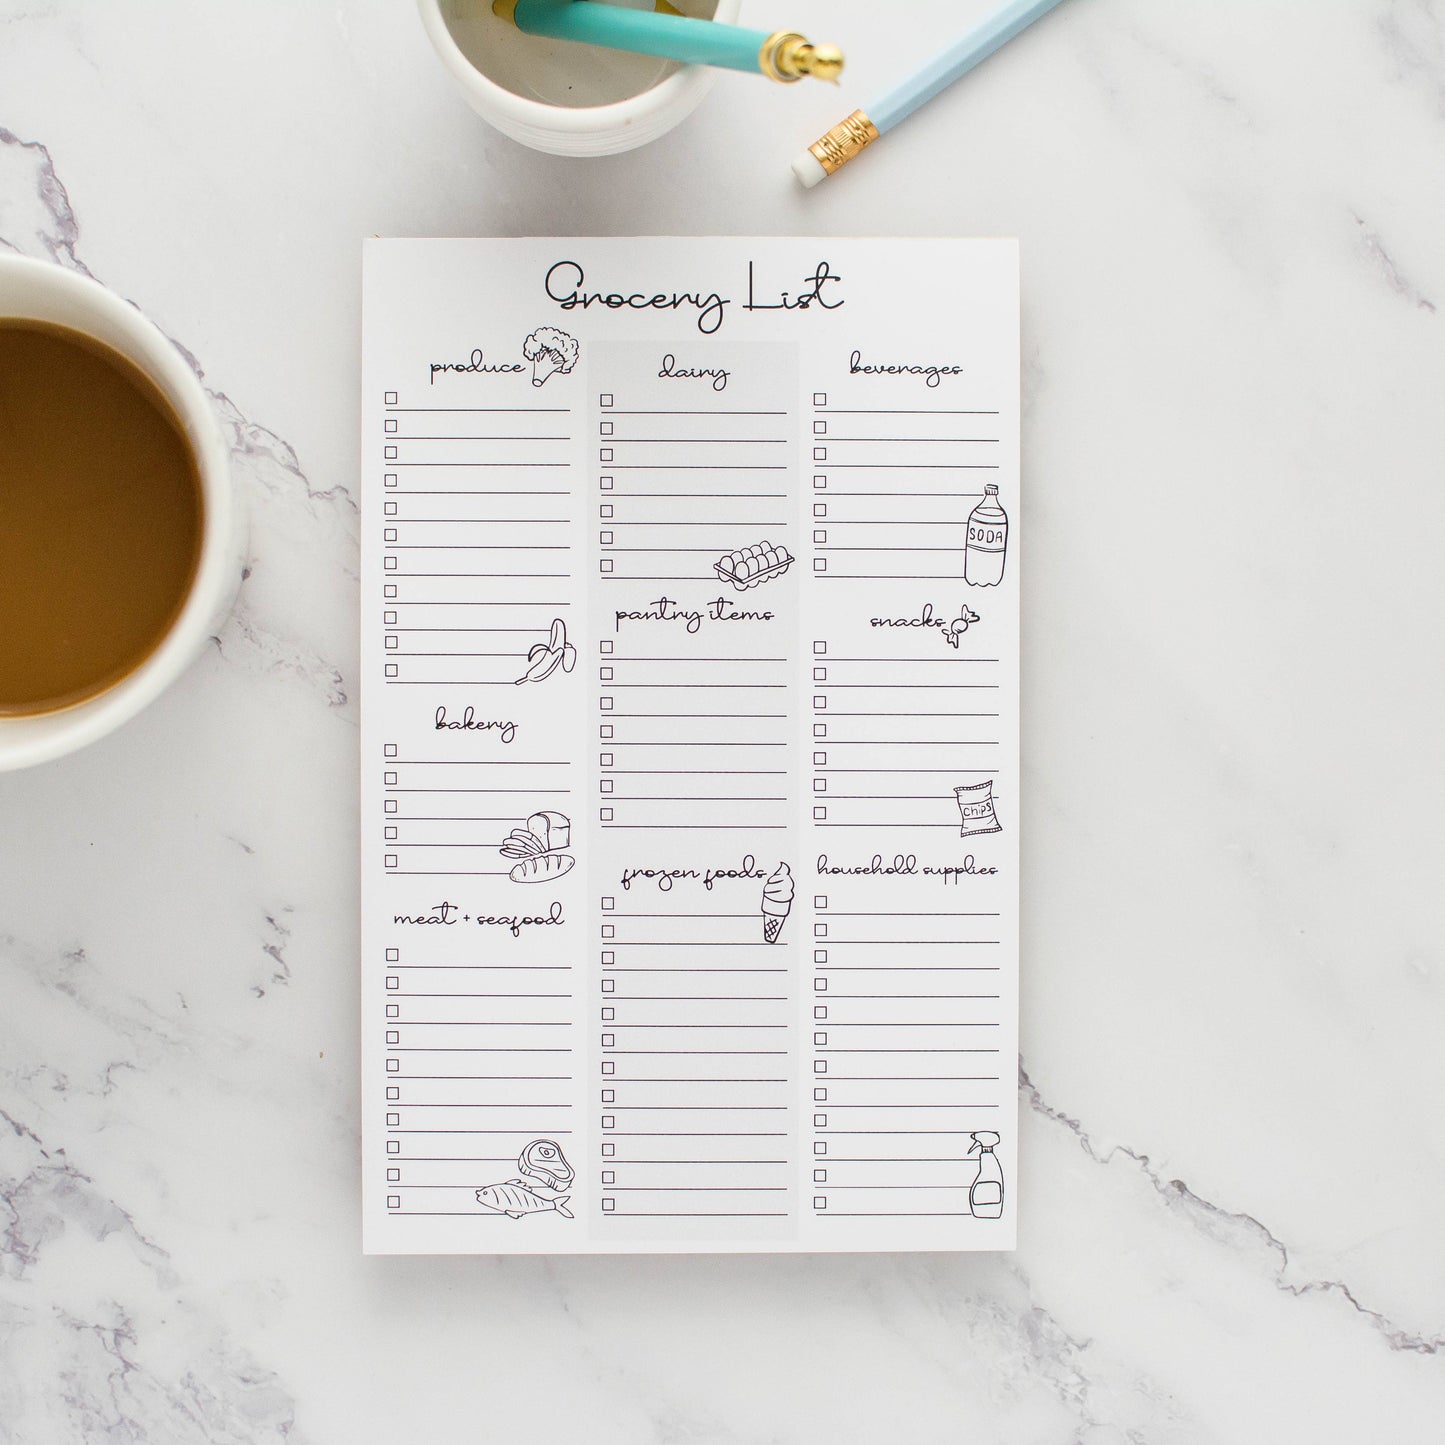 Grocery List
produce
bakery
meat + seafood
dairy
pantry items
frozen foods
beverages
SODA
snacks
Chips
household supplies